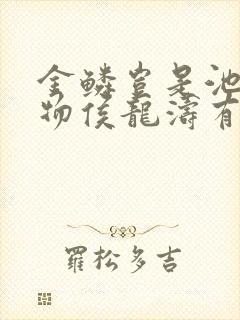 金鱗豈是池
物侯龍濤有
羅松多吉